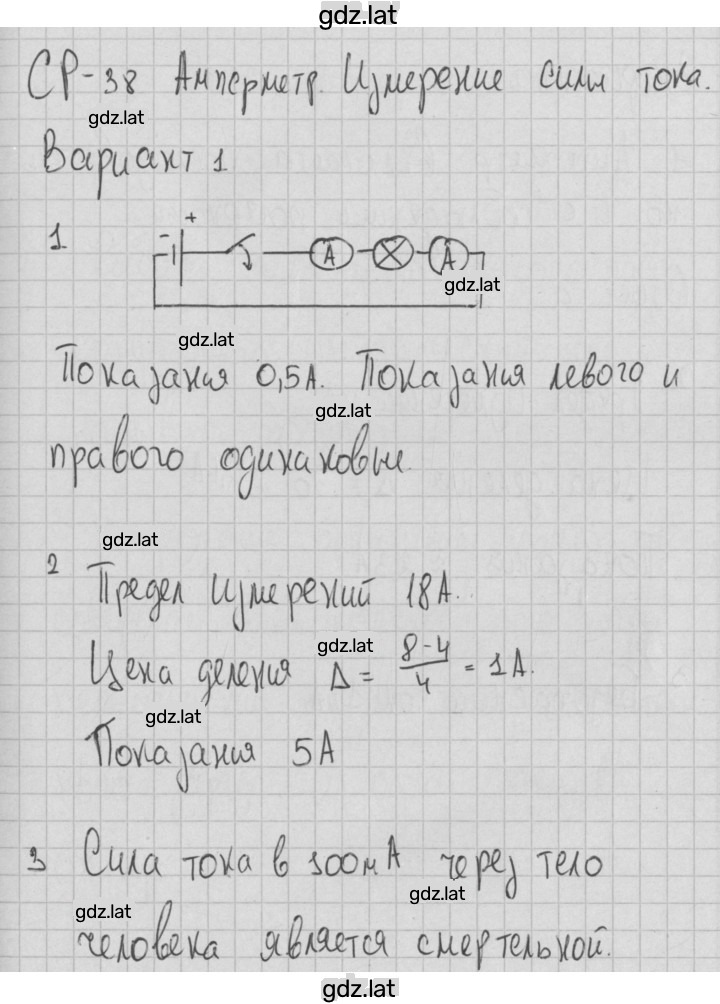 gdz.lat
СР-38 Амперметр. Измерение силы тока.
gdz.lat
Вариант 1
1
- +
A A
gdz.lat
gdz.lat
Показания 0,5А. Показания левого и
gdz.lat
правого одинаковые.
gdz.lat
2 Предел измерений 18А.
gdz.lat
Цена деления Δ = (8-4)/4 = 1А.
gdz.lat
Показания 5А
3 Сила тока в 100мА через тело
gdz.lat
gdz.lat
человека является смертельной.
gdz.lat